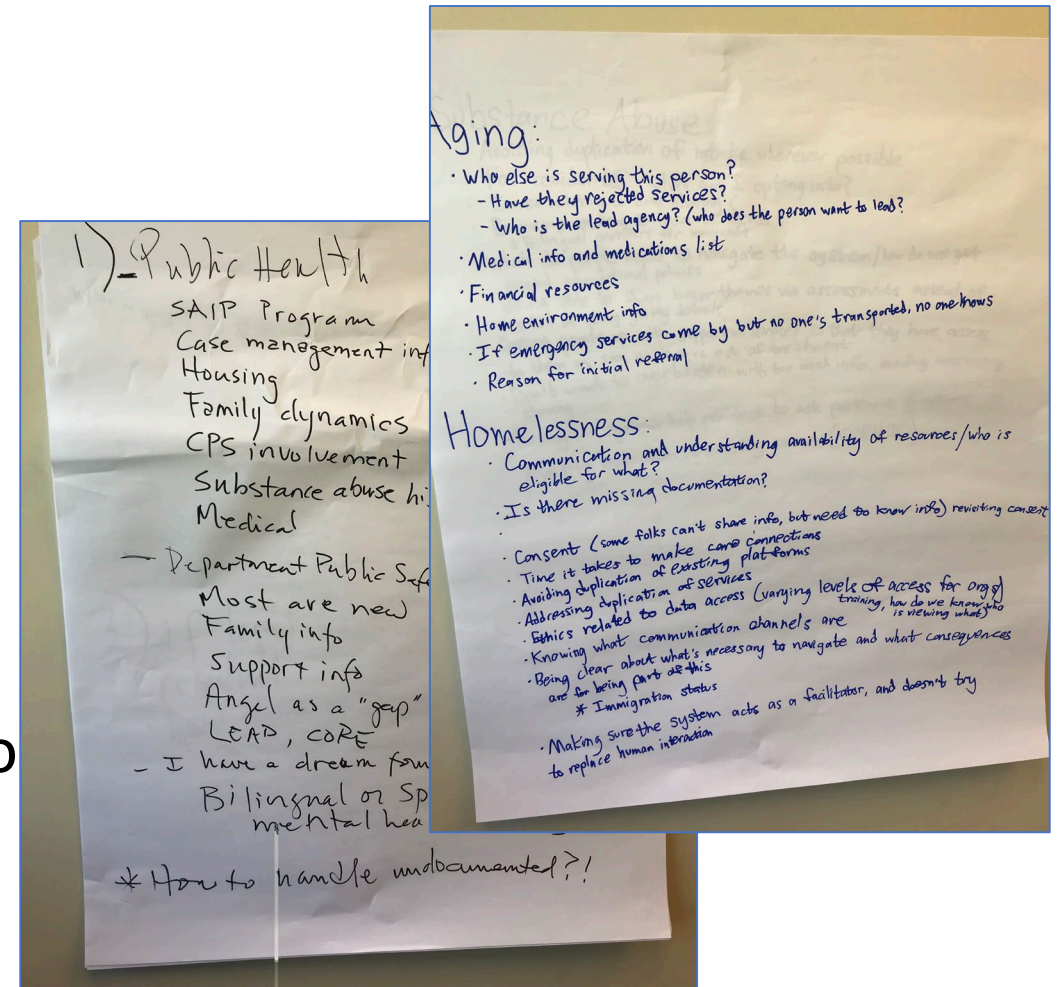 1) - Public Health
SAIP Program
Case management inf
Housing
Family dynamics
CPS involvement
Substance abuse hi
Medical
- Department Public Safe
Most are new
Family info
Support info
Angel as a "gap"
LEAD, CORE
- I have a dream foun
Bilingual or Sp
mental hea
* How to handle undocumented?!
o
Aging:
· Who else is serving this person?
- Have they rejected services?
- Who is the lead agency? (who does the person want to lead?
· Medical info and medications list
· Financial resources
· Home environment info
· If emergency services come by but no one's transported, no one knows
· Reason for initial referral
Homelessness:
· Communication and understanding availability of resources/who is
eligible for what?
· Is there missing documentation?
· Consent (some folks can't share info, but need to know info) revisiting consent
· Time it takes to make care connections
· Avoiding duplication of existing platforms
· Addressing duplication of services
· Ethics related to data access (varying levels of access for orgs)
training, how do we know who
is viewing what)
· Knowing what communication channels are
· Being clear about what's necessary to navigate and what consequences
are for being part of this
* Immigration status
· Making sure the system acts as a facilitator, and doesn't try
to replace human interaction
Substance Abuse
Avoiding duplication of intake wherever possible